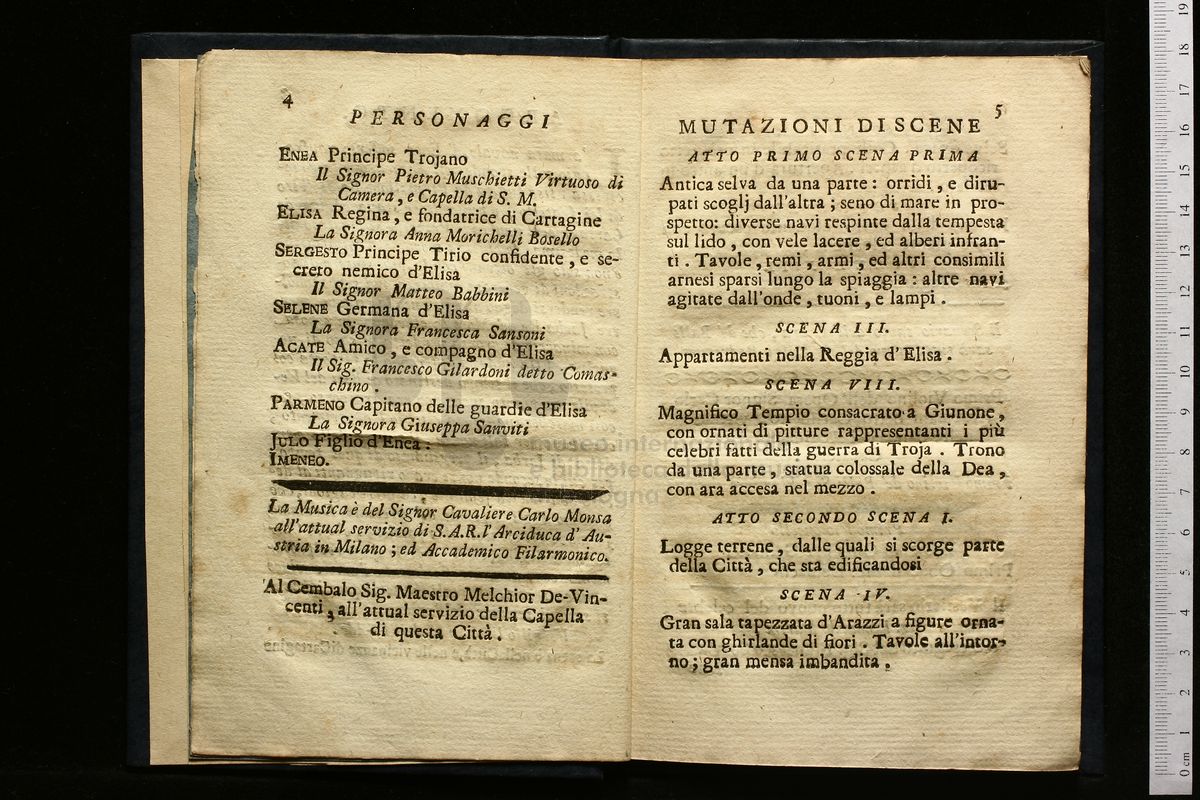 4
PERSONAGGI
ENEA Principe Trojano
Il Signor Pietro Muschietti Virtuoso di
Camera, e Capella di S. M.
ELISA Regina, e fondatrice di Cartagine
La Signora Anna Morichelli Bosello
SERGESTO Principe Tirio confidente, e se-
creto nemico d'Elisa
Il Signor Matteo Babbini
SELENE Germana d'Elisa
La Signora Francesca Sansoni
ACATE Amico, e compagno d'Elisa
Il Sig. Francesco Gilardoni detto Comas-
chino.
PARMENO Capitano delle guardie d'Elisa
La Signora Giuseppa Sanviti
JULO Figlio d'Enea.
IMENEO.
La Musica è del Signor Cavaliere Carlo Monsa
all'attual servizio di S.A.R. l'Arciduca d'Au-
stria in Milano; ed Accademico Filarmonico.
Al Cembalo Sig. Maestro Melchior De-Vin-
centi, all'attual servizio della Capella
di questa Città.
5
MUTAZIONI DI SCENE
ATTO PRIMO SCENA PRIMA
Antica selva da una parte: orridi, e diru-
pati scoglj dall'altra; seno di mare in pro-
spetto: diverse navi respinte dalla tempesta
sul lido, con vele lacere, ed alberi infran-
ti. Tavole, remi, armi, ed altri consimili
arnesi sparsi lungo la spiaggia: altre navi
agitate dall'onde, tuoni, e lampi.
SCENA III.
Appartamenti nella Reggia d'Elisa.
SCENA VIII.
Magnifico Tempio consacrato a Giunone,
con ornati di pitture rappresentanti i più
celebri fatti della guerra di Troja. Trono
da una parte, statua colossale della Dea,
con ara accesa nel mezzo.
ATTO SECONDO SCENA I.
Logge terrene, dalle quali si scorge parte
della Città, che sta edificandosi
SCENA IV.
Gran sala tapezzata d'Arazzi a figure orna-
ta con ghirlande di fiori. Tavole all'intor-
no; gran mensa imbandita.
museo internazionale
e biblioteca
0 cm 1 2 3 4 5 6 7 8 9 10 11 12 13 14 15 16 17 18 19